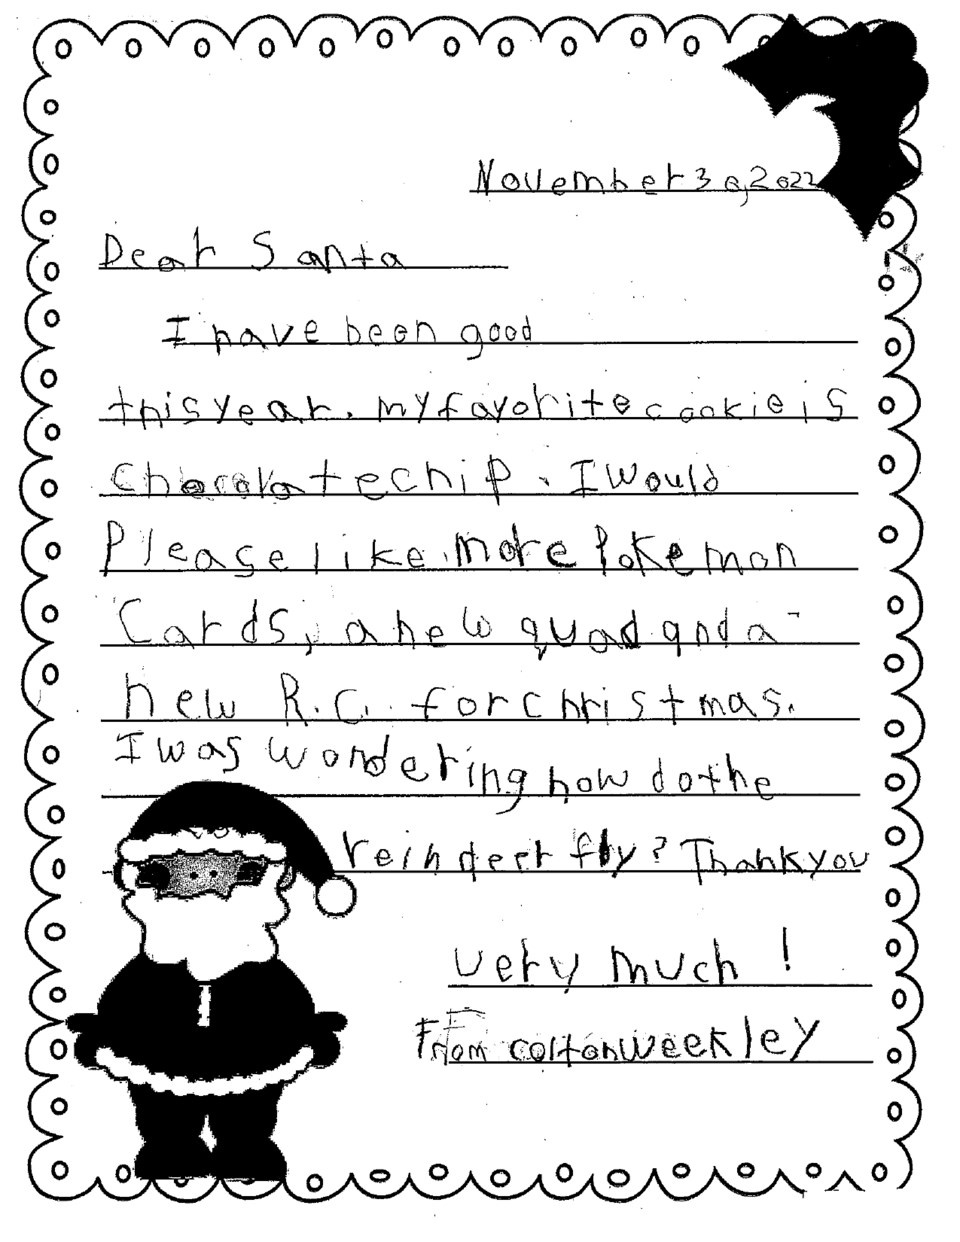 November 30, 2022
Dear Santa
I have been good
this year. my favorite cookie is
Chocolate chip. I would
Please like more Pokemon
Cards, a new quad and a
new R.C. for christmas.
I was wondering how do the
reindeer fly? Thank you
very much !
From colton weekley